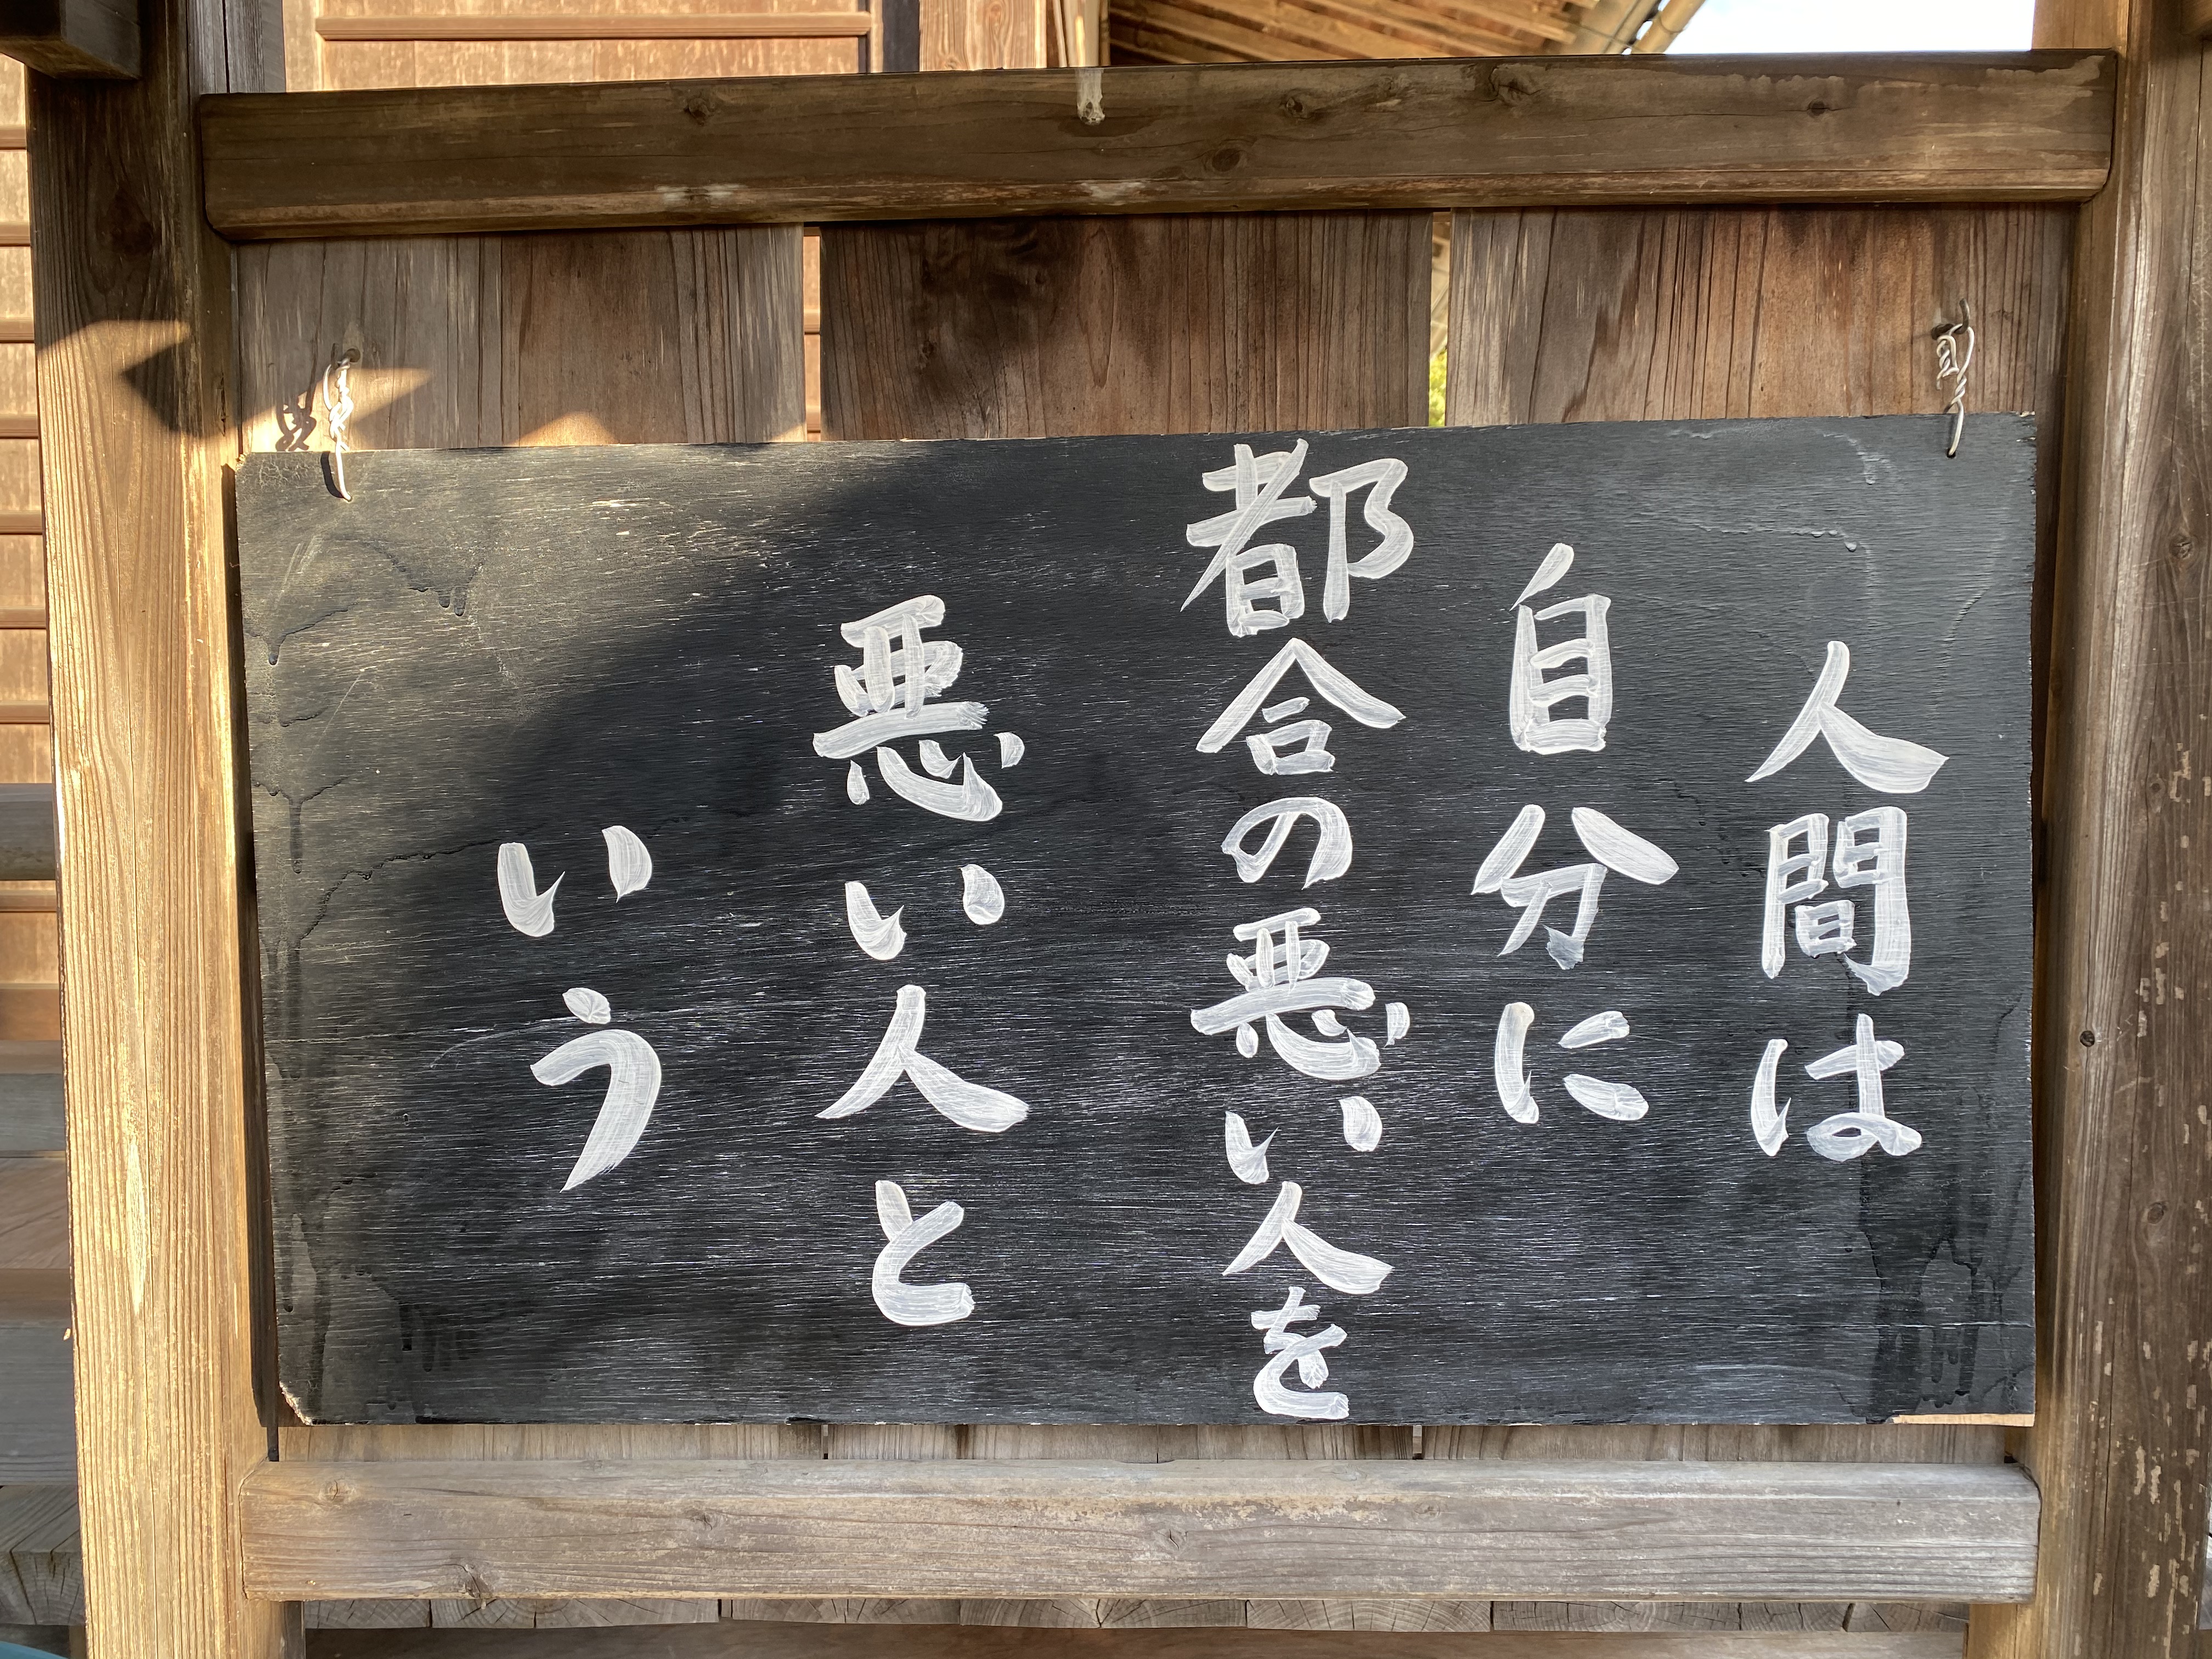 人間は
自分に
都合の悪い人を
悪い人と
いう